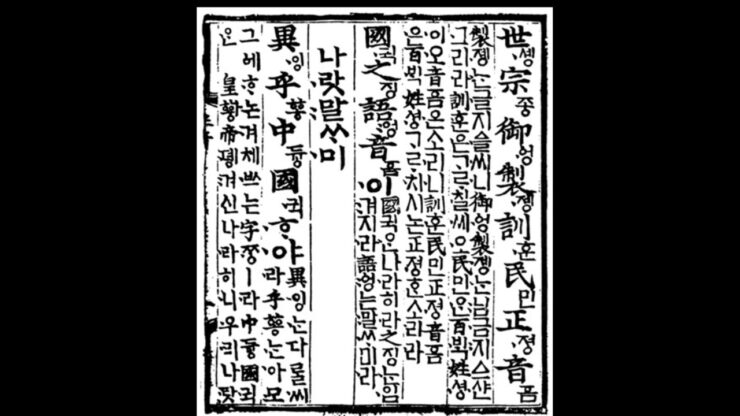 世솅宗종御엉製졩訓훈民민正졍音ᅙᅳᆷ
製졩는글지ᅀᅳᆯ씨니御엉製졩는님금지ᅀᅳ샨
그리라訓훈은ᄀᆞᄅᆞ칠씨오民민ᄋᆞᆫ百ᄇᆡᆨ姓셩
이오音ᅙᅳᆷ은소리니訓훈民민正졍音ᅙᅳᆷ
은百ᄇᆡᆨ姓셩ᄀᆞᄅᆞ치시논正졍ᄒᆞᆫ소리라
國귁之징語ᅌᅥᆼ音ᅙᅳᆷ이
國귁ᄋᆞᆫ나라히라之징ᄂᆞᆫ입
겨지라語ᅌᅥᆼ는말ᄊᆞ미라
나랏말ᄊᆞ미
異잉乎ᅘᅩᆼ中듀ᇰ國귁ᄒᆞ야
異잉ᄂᆞᆫ다ᄅᆞᆯ씨
라乎ᅘᅩᆼᄂᆞᆫ아모
그ᅌᅦᄒᆞ논겨체ᄡᅳ는字ᄍᆞᆼㅣ라中듀ᇰ國귁
ᄋᆞᆫ皇ᅘᅪᆼ帝뎽겨신나라히니우리나랏